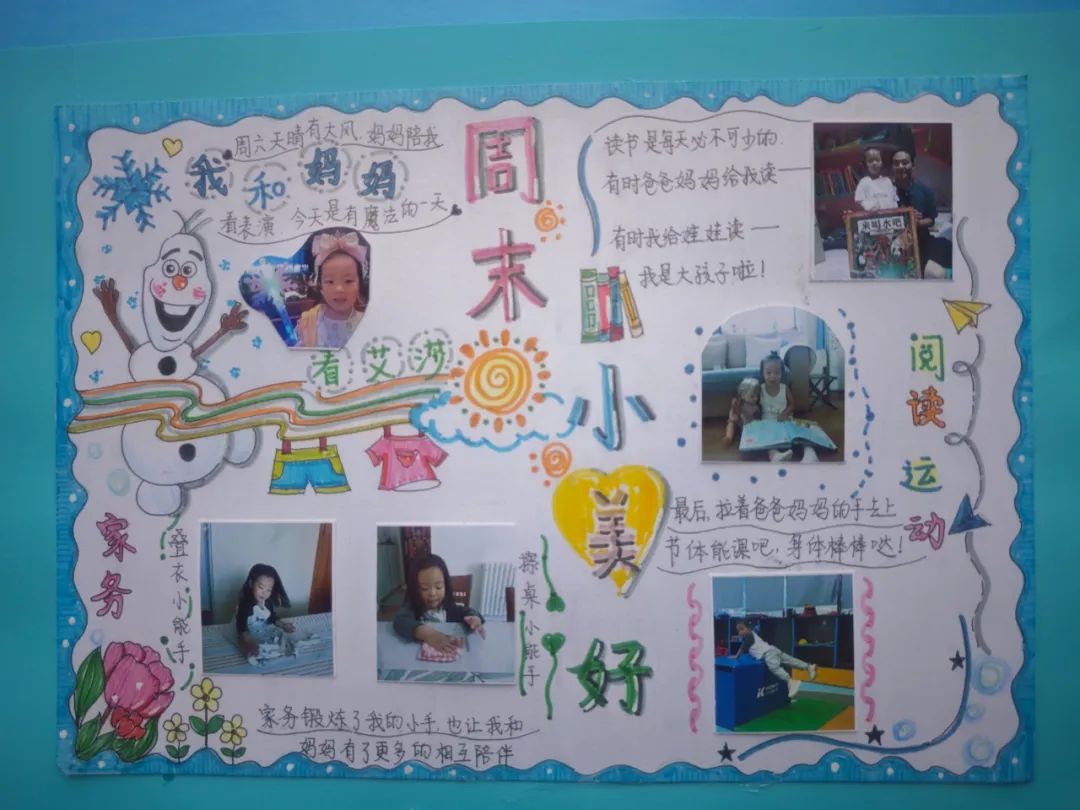 周末小美好
周六天晴有大风，妈妈陪我
我和妈妈
看表演，今天是有魔法的一天
看艾莎
读书是每天必不可少的．
有时爸爸妈妈给我读——
有时我给娃娃读——
我是大孩子啦！
来喝水吧
阅读运动
最后，拉着爸爸妈妈的手去上
节体能课吧，身体棒棒哒！
家务
叠衣小能手
擦桌小能手
家务锻炼了我的小手，也让我和
妈妈有了更多的相互陪伴